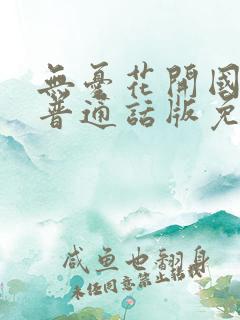 無憂花開國
普通話版免
咸鱼也翻身
未经同意禁止转载